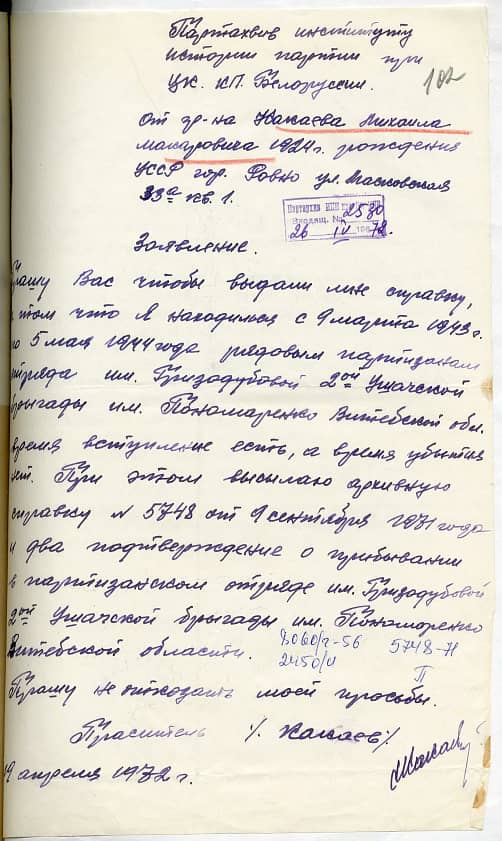 Партахвов институту
истории партии при
ЦК. КП. Белоруссии.
102
От гр-на Какаева Михаила
Макаровича 1924 г. рождения
УССР гор. Ровно ул. Масковская
33а кв. 1.
Входящ. № 2580
26 IV 1972.
Заявление.
рашу Вас чтобы выдали мне справку,
том что я находился с 9 марта 1943 г.
по 5 мая 1944 года рядовым партизанам
отряда им. Гризадубовой 2ой Ушачской
брыгады им. Пономаренко Витебской обл.
время вступление есть, а время убытия
нет. При этом высылаю архивную
справку N 5748 от 9 сентября 1971 года
и два подтверждение о прибывании
в партизанском отряде им. Гризадубовой
2ой Ушачской брыгады им. Пономоренко
Витебской области.
8060/г-56 5748-Н
2450/и П
Прашу не отказать моей прасьбы.
Праситель /. Какаев /.
19 апреля 1972 г.